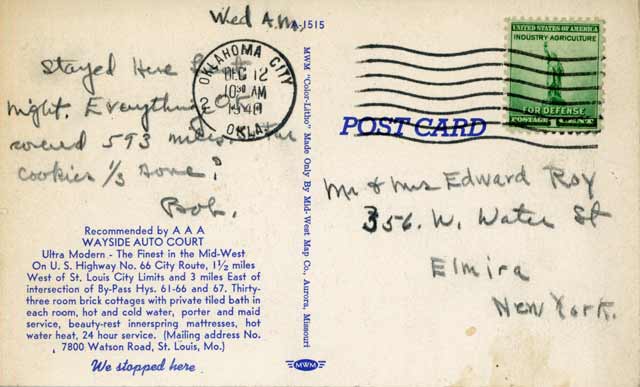 Wed A.M.
A-1515
Stayed Here
night. Everything
covered 593 miles.
cookies 1/3 gone?
Bob.
OKLAHOMA CITY
DEC 12
10 30 AM
OKLA.
2
UNITED STATES OF AMERICA
INDUSTRY AGRICULTURE
FOR DEFENSE
POSTAGE 1 CENT
POST CARD
MWM "Color-Litho" Made Only By Mid-West Map Co., Aurora, Missouri
Mr & Mrs Edward Roy
356. W. Water St
Elmira
New York.
Recommended by A A A
WAYSIDE AUTO COURT
Ultra Modern - The Finest in the Mid-West
On U. S. Highway No. 66 City Route, 1½ miles
West of St. Louis City Limits and 3 miles East of
intersection of By-Pass Hys. 61-66 and 67. Thirty-
three room brick cottages with private tiled bath in
each room, hot and cold water, porter and maid
service, beauty-rest innerspring mattresses, hot
water heat, 24 hour service. (Mailing address No.
7800 Watson Road, St. Louis, Mo.)
We stopped here
MWM